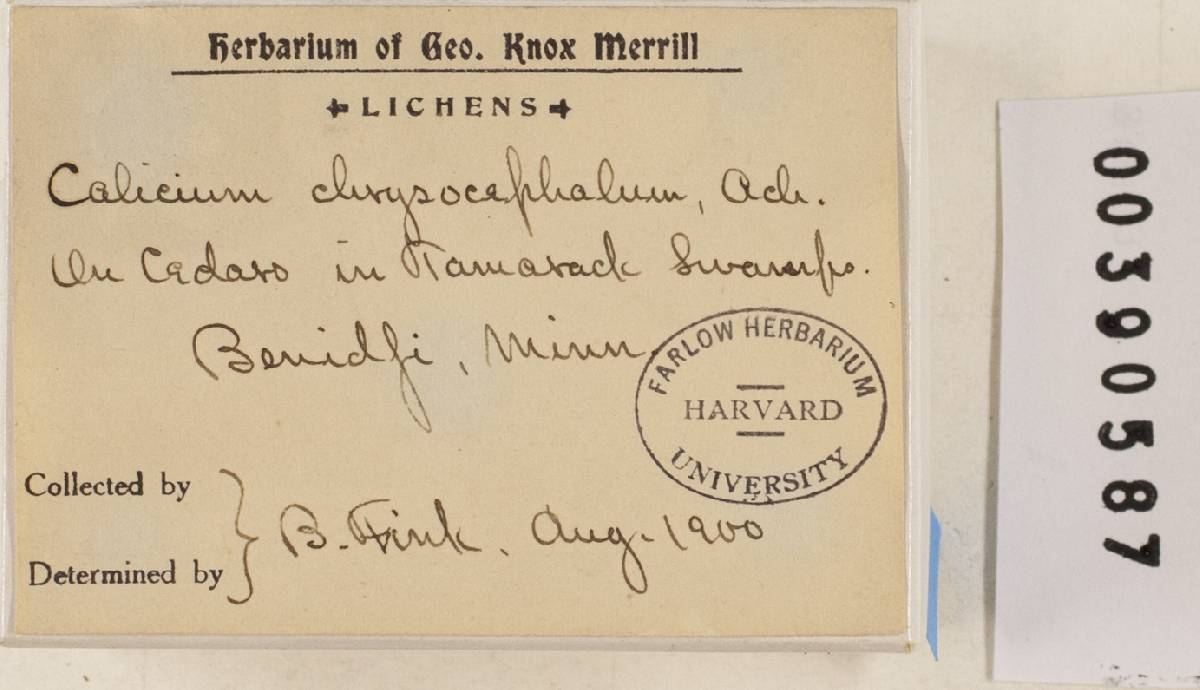 Herbarium of Geo. Knox Merrill
LICHENS
Calicium chrysocephalum, Ach.
On Cedars in Tamarack Swamps.
Bemidji, Minn.
FARLOW HERBARIUM
HARVARD
UNIVERSITY
Collected by
B. Fink. Aug. 1900
Determined by
00390587